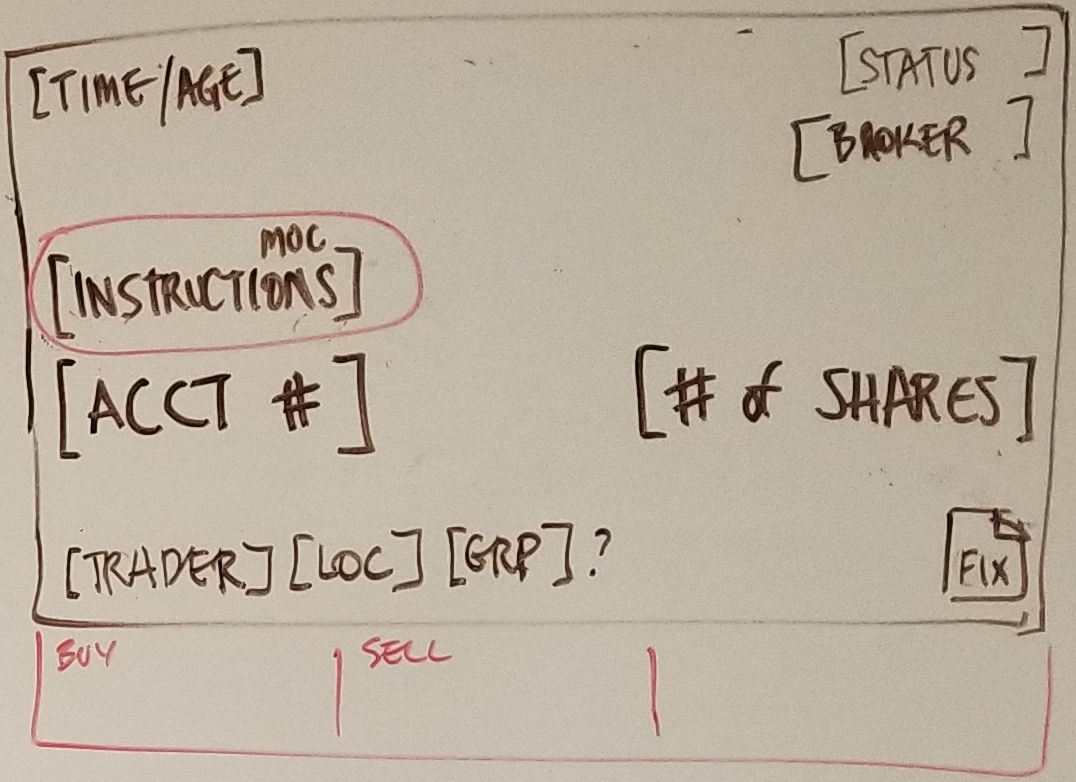 [TIME/AGE]
[STATUS ]
[BROKER ]
MOC
[INSTRUCTIONS]
[ACCT #]
[# of SHARES]
[TRADER] [LOC] [GRP]?
FIX
BUY
SELL